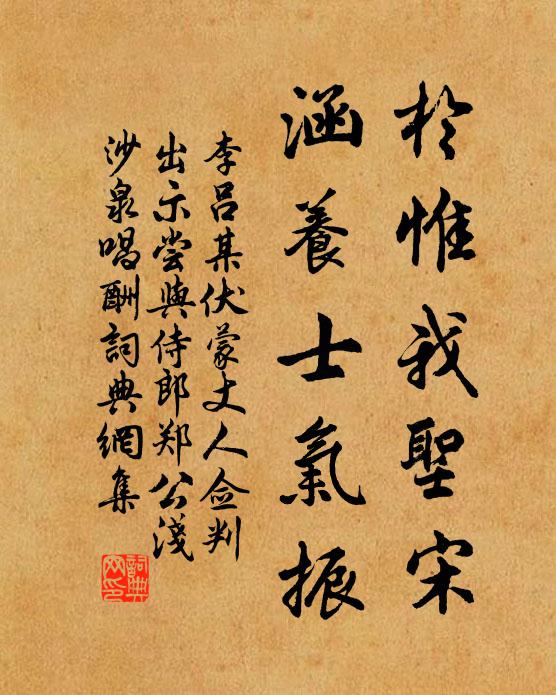 於惟我聖宋
涵養士氣振
李呂某伏蒙丈人僉判
出示嘗與侍郎郑公淺
沙泉唱酬詞典網集
詞典网印